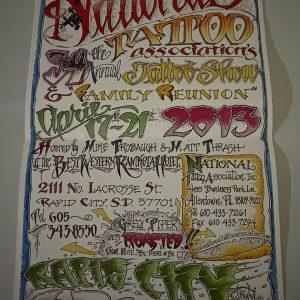 National
Tattoo
Association's
34th
Annual Tattoo Show
& "Family Reunion"
April 17-21st 2013
Hosted by Mike Trobaugh & Matt Thrash
at the Best Western Ramkota Hotel
2111 No. Lacrosse St.
Rapid City, S.D 57701
Tel 605
343 8550
National
Tattoo Association Inc.
485 Business Park Ln.
Allentown, Pa. 18109-9120
Tel 610 433-7261
Fax 610 433-7294
Greg Piper
Roasted!!
Rapid City